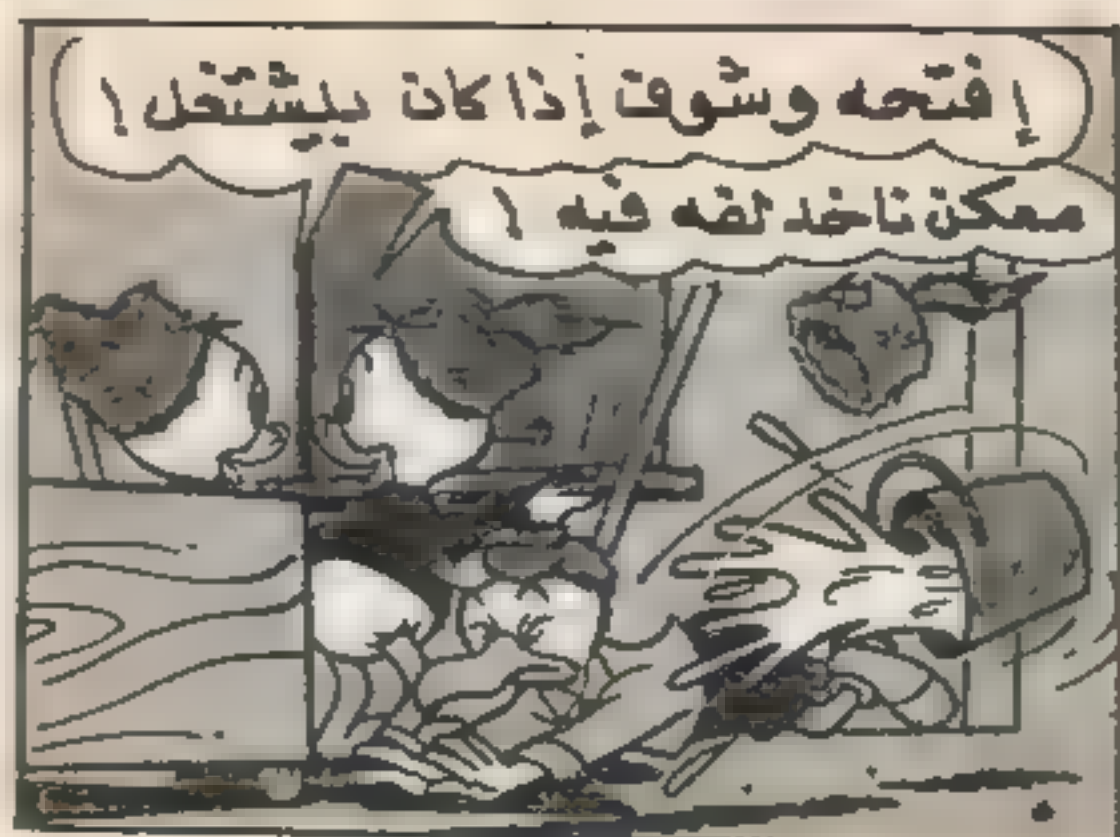 إفتحه وشوف إذا كان بيشتغل !
ممكن ناخد لفه فيه !